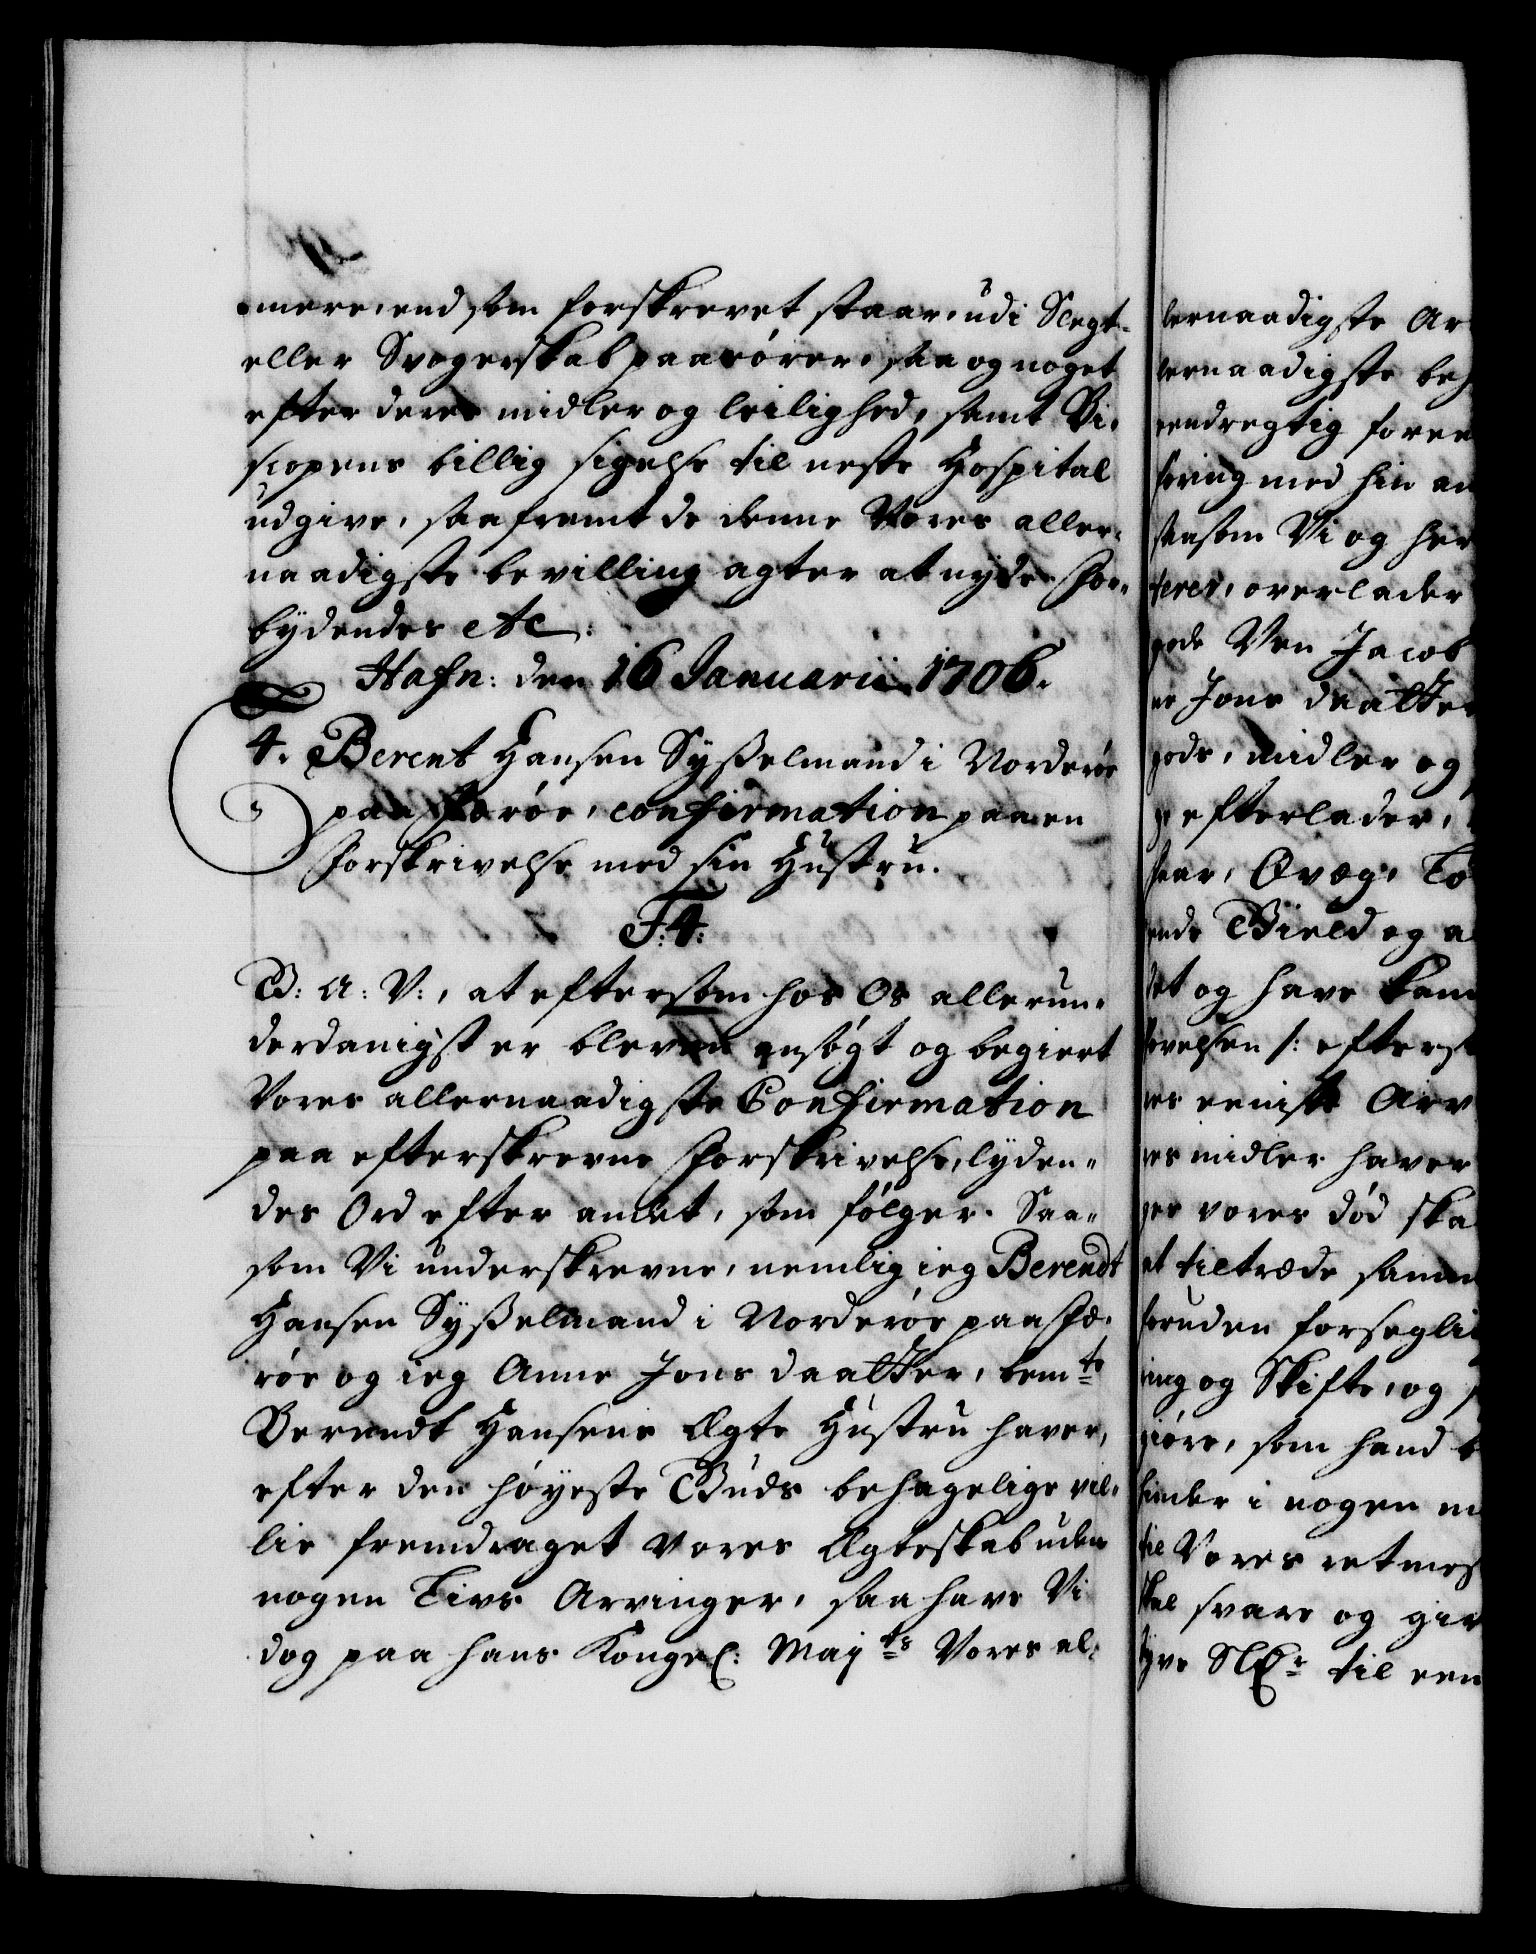 mere, end som forskrevet staar, udi Slegt-
eller Svogerskab paarörer, saa og noget
efter deres midler og leilighed, samt Bi-
scopens billig sigelse til neste Hospital
udgive, saafremt de denne Vores aller-
naadigste bevilling agter at nyde. For-
bydendes etc:
Hafn: den 16 Januarii 1706.
4. Berent Hansen Sysselmand i Norderöe
paa Færöe, confirmation paa en
Forskrivelse med sin Hustru.
F: 4.
B: A: V:, at eftersom hos Os allerun-
derdanigst er bleven ansögt og begiert
Vores allernaadigste Confirmation
paa efterskrevne Forskrivelse, lyden-
des Ord efter andet, som fölger. Saa-
som Vi underskrevne, nemlig ieg Berendt
Hansen Sysselmand i Norderöe paa Fæ-
röe og ieg Anne Jons daatter, bemte
Berendt Hansens Ægte Hustru haver,
efter den höyeste Guds behagelige vil-
lie fremdraget vores Ægteskab uden
nogen Livs Arvinger, saa have Vi
dog paa hans Kongel: Mayts Vores al-
lernaadigste Ar
lernaadigste beh
eendregtig foree
hring med hin an
saasom Vi og her
teres, overlader
gode Ven Jacob
ne Jons daatter
gods, midler og
efterlader,
haar, Qvæg, Lö
ende Gield og a
et og have kand
velsen /: efterso
res eeniste Arv
res midler haver
ger vores död ska
at tiltræde samm
foruden forsegli
ring og Skifte, og
giöre, som hand b
hinder i nogen m
til Vores retmes
skal svare og giv
tyve Sldr til een